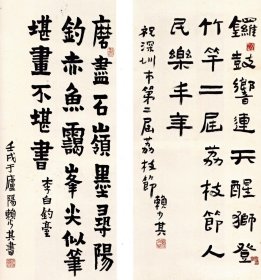 鑼鼓響連天醒獅登
竹竿二屆荔枝節人
民樂丰年
祝深圳市第二屆荔枝節
賴少其
磨盡石嶺墨尋陽
釣赤魚靄峯尖似筆
堪畫不堪書
李白釣臺
壬戌于廬陽賴少其書